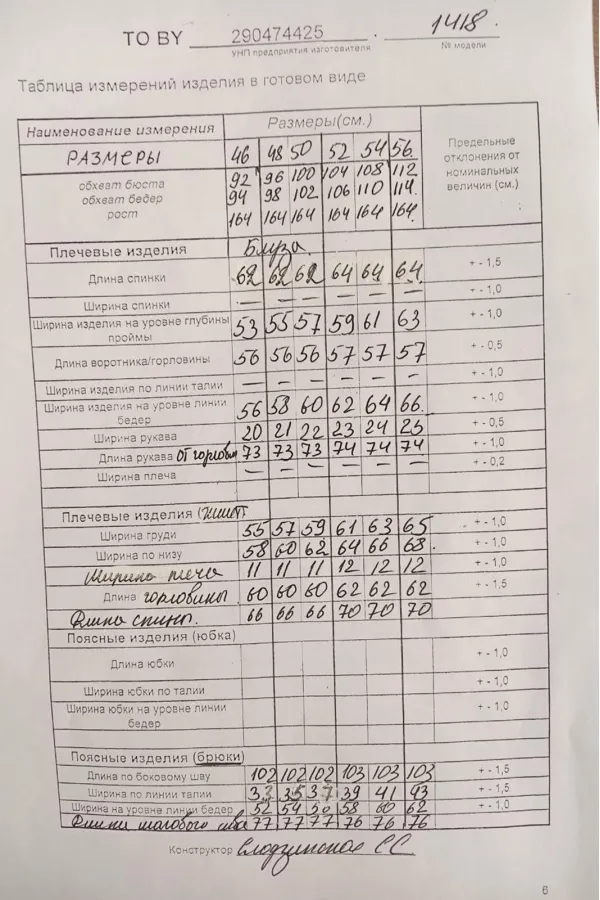 TO BY 290474425 . 1418.
УНП предприятия изготовителя № модели
Таблица измерений изделия в готовом виде
Наименование измерения Размеры(см.) Предельные отклонения от номинальных величин (см.)
РАЗМЕРЫ 46 48 50 52 54 56
обхват бюста 92 96 100 104 108 112
обхват бедер 94 98 102 106 110 114
рост 164 164 164 164 164 164
Плечевые изделия Блуза.
Длина спинки 62 62 62 64 64 64 + - 1,5
Ширина спинки — — — — — — + - 1,0
Ширина изделия на уровне глубины проймы 53 55 57 59 61 63 + - 1,0
Длина воротника/горловины 56 56 56 57 57 57 + - 0,5
Ширина изделия по линии талии — — — — — — + - 1,0
Ширина изделия на уровне линии бедер 56 58 60 62 64 66. + - 1,0
Ширина рукава 20 21 22 23 24 25 + - 0,5
Длина рукава от горлови 73 73 73 74 74 74 + - 1,0
Ширина плеча — — — — — — + - 0,2
Плечевые изделия (жилет
Ширина груди 55 57 59 61 63 65 + - 1,0
Ширина по низу 58 60 62 64 66 68. + - 1,0
Ширина плеча 11 11 11 12 12 12 + - 1,0
Длина горловины 60 60 60 62 62 62 + - 1,5
Длина спины. 66 66 66 70 70 70
Поясные изделия (юбка)
Длина юбки + - 1,0
Ширина юбки по талии + - 1,0
Ширина юбки на уровне линии бедер + - 1,0
Поясные изделия (брюки)
Длина по боковому шву 102 102 102 103 103 103 + - 1,5
Ширина по линии талии 33 35 37 39 41 43 + - 1,5
Ширина на уровне линии бедер 52 54 56 58 60 62 + - 1,0
Длина шагового шва 77 77 77 76 76 76
Конструктор СС
6